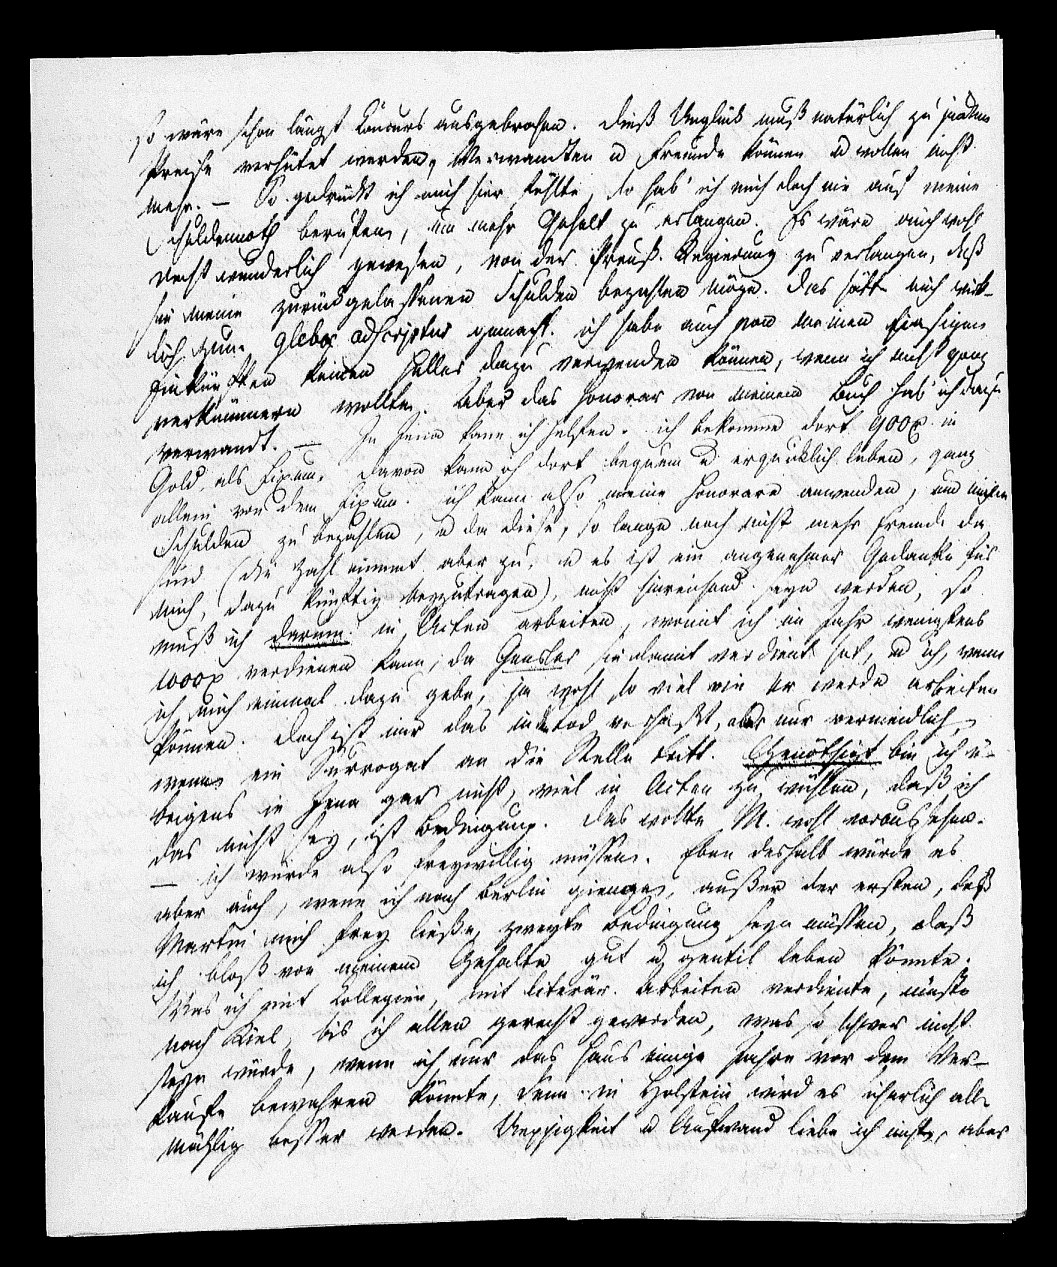 so wäre schon längst Concurs ausgebrochen. Dieß Unglück muß natürlich zu jedem
Preise verhütet werden, Verwandten u Freunde können u wollen nicht
mehr. — So gedrückt ich mich hier fühlte, so hab' ich mich doch nie auf meine
Schuldennoth berufen, um mehr Gehalt zu erlangen. Es wäre auch wohl
recht wunderlich gewesen, von der Preuß. Regierung zu verlangen, daß
sie meine zurückgelassenen Schulden bezahlen möge. Das hätte mich wirk-
lich zum glebae adscriptus gemacht. ich habe auch von meinen hiesigen
Einkünften keinen Heller dazu verwenden können, wenn ich nicht ganz
verkümmern wollte. Aber das Honorar von meinem Buch hab' ich dazu
verwandt. — In Jena kann ich helfen. ich bekomme dort 900 in
Gold, als Fixum. Davon kann ich dort bequem u erquicklich leben, ganz
allein von dem Fixum. ich kann also meine Honorare anwenden, um
Schulden zu bezahlen, u da diese, so lange noch nicht mehr Fremde da
sind (die Zahl nimmt aber zu, u es ist ein angenehmer Gedanke für
mich, dazu künftig beyzutragen), nicht hinreichend seyn werden, so
muß ich darum in Acten arbeiten, womit ich im Jahr wenigstens
1000 verdienen kann, da Gensler sie damit verdient hat, u ich, wenn
ich mich einmal dazu gebe, ja wohl so viel wie er werde arbeiten
können. Doch ist mir das in den Tod verhaßt, aber nur vermeidlich,
wenn ein Surrogat an die Stelle tritt. Genöthigt bin ich ü-
brigens in Jena gar nicht, viel in Acten zu wühlen, daß ich
das nicht sey, ist Bedingung. Das wollte M. wohl voraussehen.
— ich würde also freywillig müssen. Eben deshalb würde es
aber auch, wenn ich nach Berlin gienge, außer der ersten, daß
Martin mich frey ließe, zweyte Bedingung seyn müssen, daß
ich bloß von meinem Gehalte gut u gentil leben könnte.
Was ich mit Collegien, mit literär. Arbeiten verdiente, müßte
nach Kiel, bis ich allen gerecht geworden, was so schwer nicht
seyn würde, wenn ich nur das Haus einige Jahre vor dem Ver-
kaufe bewahren könnte, denn in Holstein wird es sicherlich all-
mählig besser werden. Ueppigkeit u Aufwand liebe ich nicht, aber